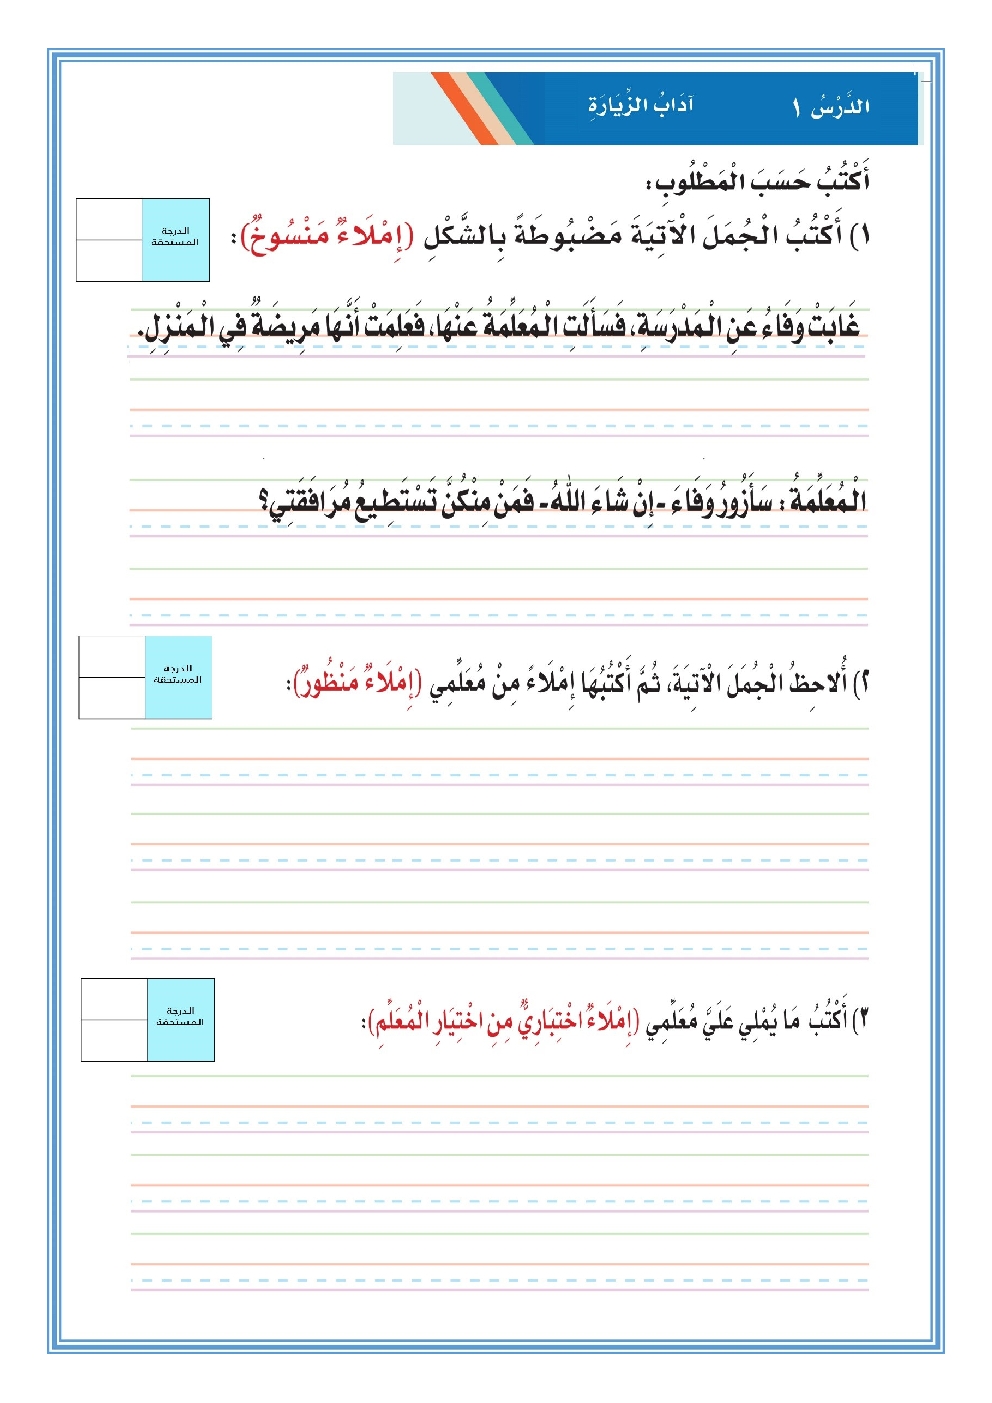 الدَّرْسُ ١ آدَابُ الزِّيَارَةِ
أَكْتُبُ حَسَبَ الْمَطْلُوبِ:
١) أَكْتُبُ الْجُمَلَ الْآتِيَةَ مَضْبُوطَةً بِالشَّكْلِ (إِمْلَاءٌ مَنْسُوخٌ):
الدرجة
المستحقة
غَابَتْ وَفَاءُ عَنِ الْمَدْرَسَةِ، فَسَأَلَتِ الْمُعَلِّمَةُ عَنْهَا، فَعَلِمَتْ أَنَّهَا مَرِيضَةٌ فِي الْمَنْزِلِ.
الْمُعَلِّمَةُ : سَأَزُورُ وَفَاءَ -إِنْ شَاءَ اللهُ- فَمَنْ مِنْكُنَّ تَسْتَطِيعُ مُرَافَقَتِي؟
٢) أُلاحِظُ الْجُمَلَ الْآتِيَةَ، ثُمَّ أَكْتُبُهَا إِمْلَاءً مِنْ مُعَلِّمِي (إِمْلَاءٌ مَنْظُورٌ):
الدرجة
المستحقة
٣) أَكْتُبُ مَا يُمْلِي عَلَيَّ مُعَلِّمِي (إِمْلَاءٌ اخْتِبَارِيٌّ مِنِ اخْتِيَارِ الْمُعَلِّمِ):
الدرجة
المستحقة